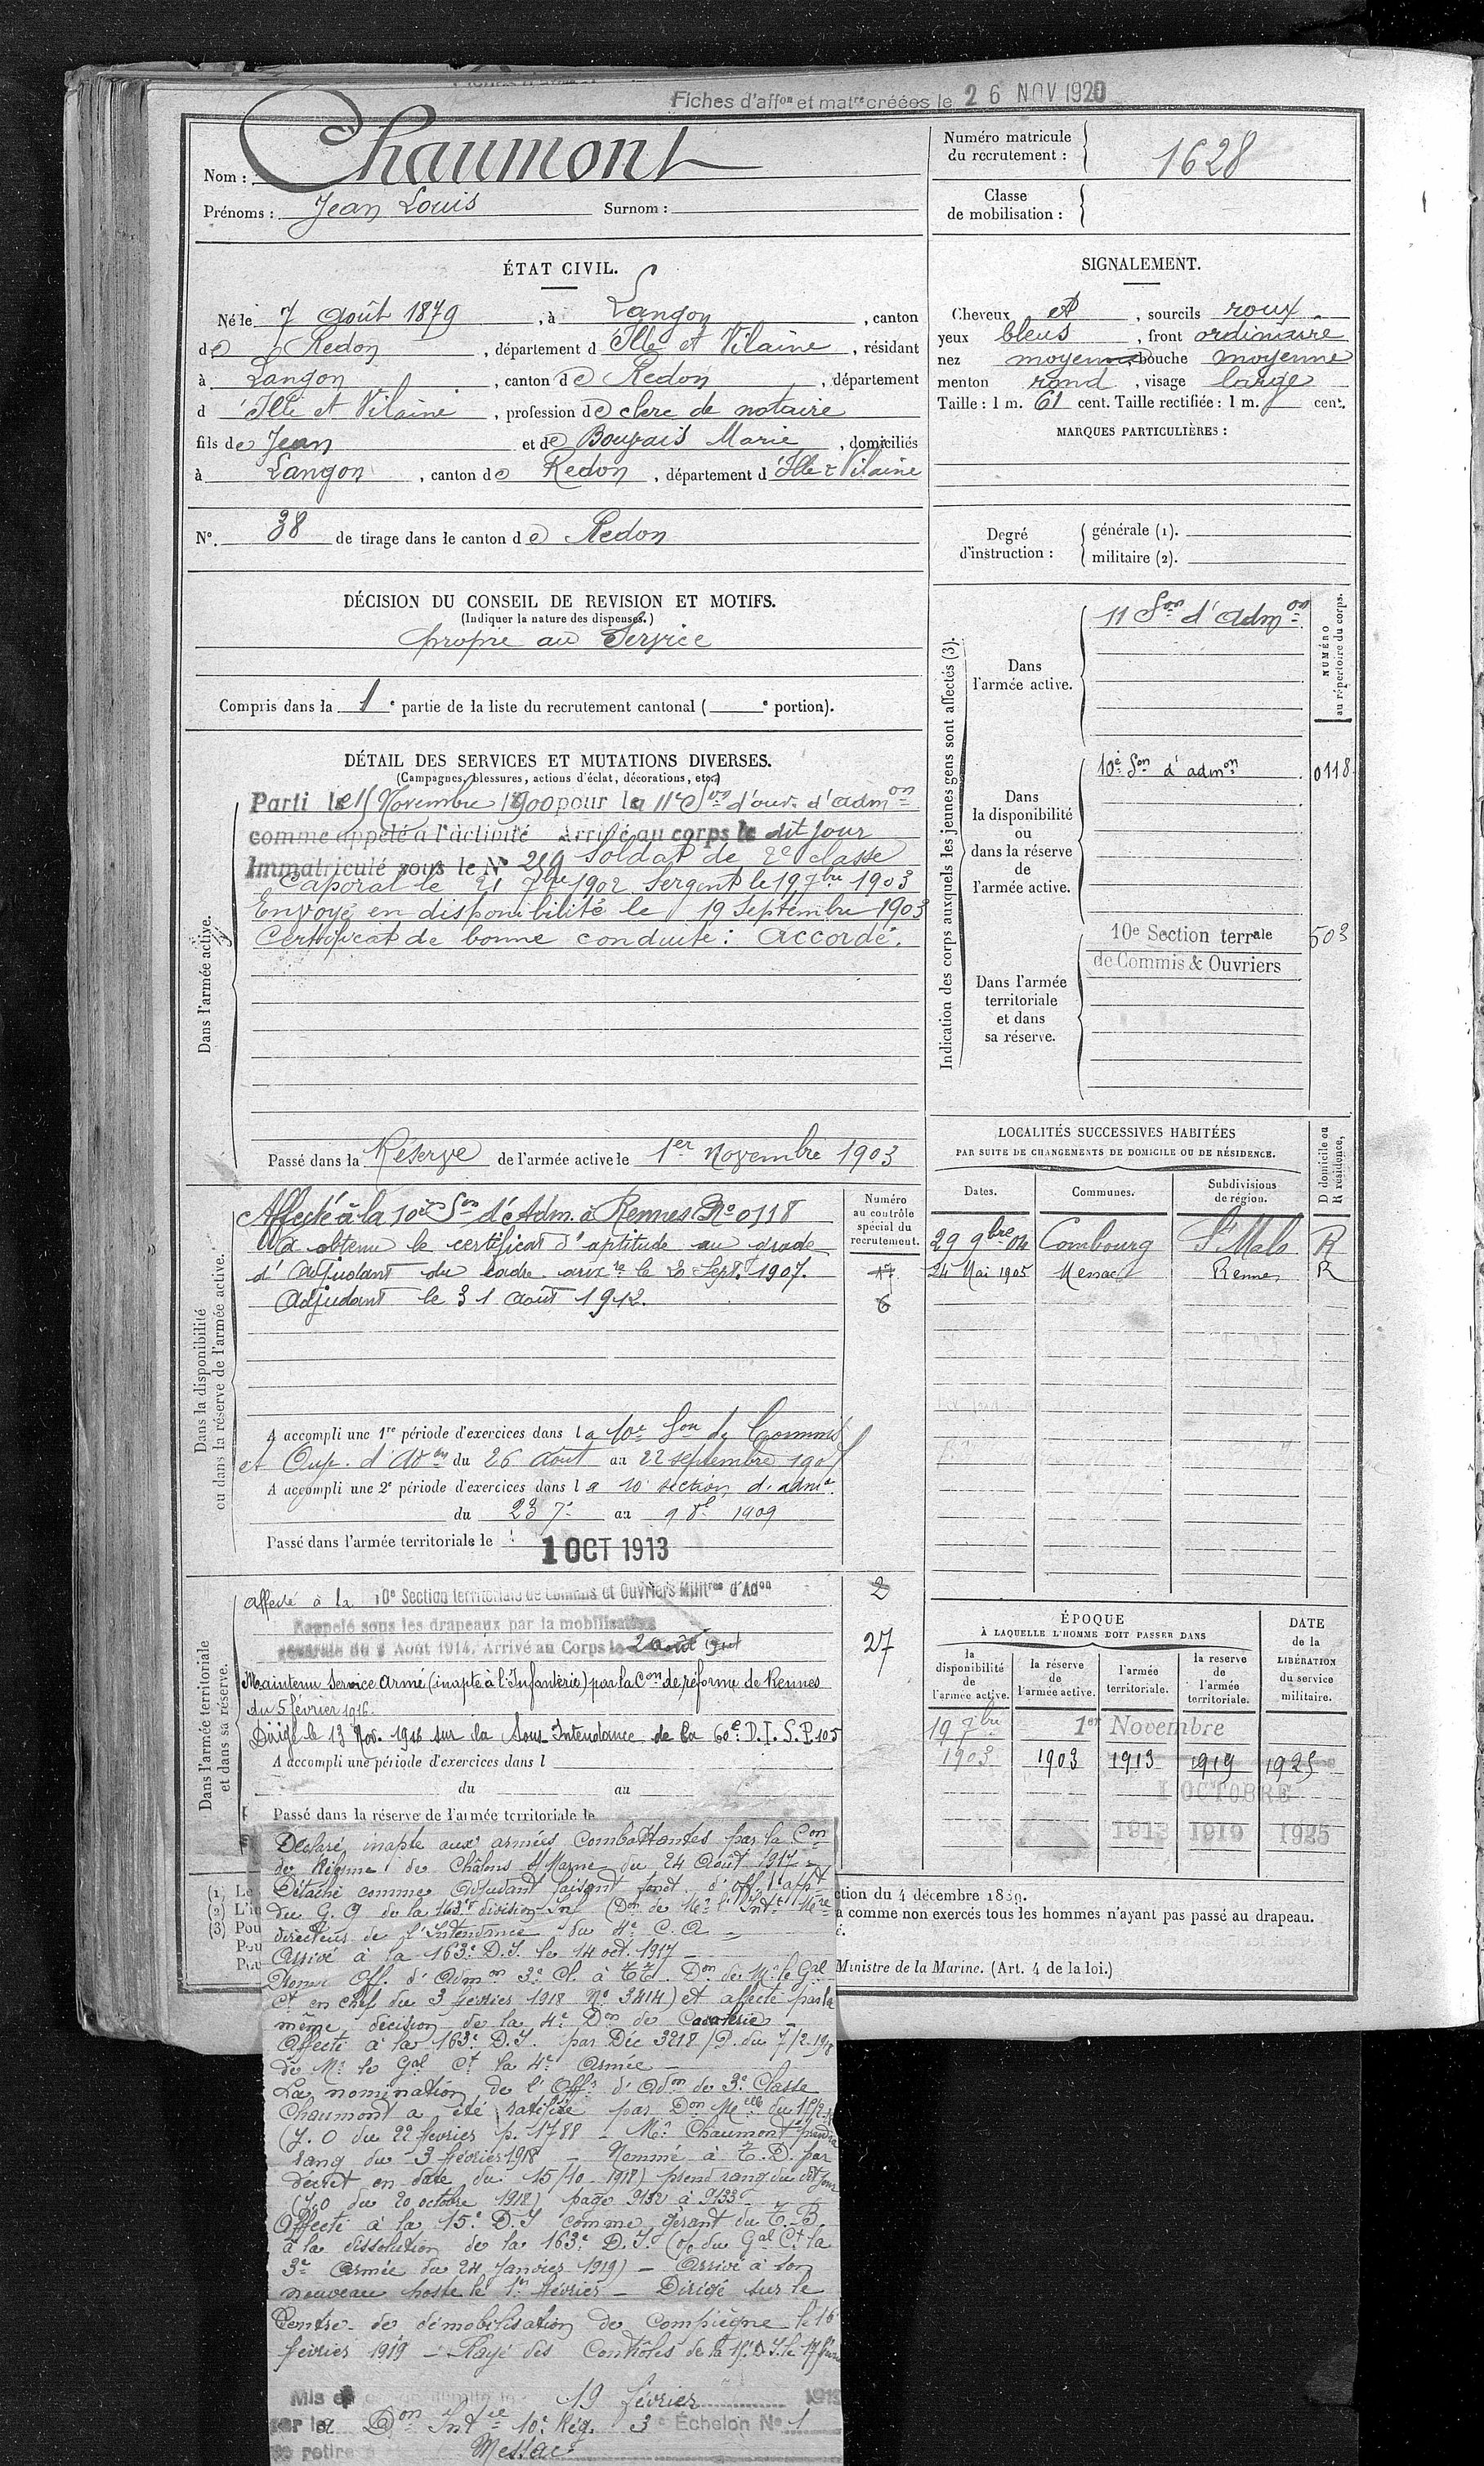 Fiches d'affon et matre créées le 26 NOV 1920
Nom : Chaumont
Prénoms : Jean Louis Surnom :
Numéro matricule
du recrutement : 1628
Classe
de mobilisation :
ÉTAT CIVIL.
Né le 7 Août 1879, à Langon, canton
de Redon, département d'Ille et Vilaine, résidant
à Langon, canton de Redon, département
d'Ille et Vilaine, profession de clerc de notaire
fils de Jean et de Bougais Marie, domiciliés
à Langon, canton de Redon, département d'Ille & Vilaine
N° 38 de tirage dans le canton de Redon
SIGNALEMENT.
Cheveux et, sourcils roux
yeux bleus, front ordinaire
nez moyen, bouche moyenne
menton rond, visage large
Taille : 1 m. 61 cent. Taille rectifiée : 1 m. cent.
MARQUES PARTICULIÈRES :
Degré
d'instruction :
générale (1).
militaire (2).
DÉCISION DU CONSEIL DE REVISION ET MOTIFS.
(Indiquer la nature des dispenses.)
propre au Service
Compris dans la 1e partie de la liste du recrutement cantonal ( e portion).
DÉTAIL DES SERVICES ET MUTATIONS DIVERSES.
(Campagnes, blessures, actions d'éclat, décorations, etc.)
Dans l'armée active.
Parti le 15 Novembre 1900 pour la 11e Son d'ouv. d'adm on
comme appelé à l'activité Arrivé au corps le dit jour
Immatriculé sous le N° Soldat de 2e classe
Caporal le 21 7bre 1902 Sergent le 19 7bre 1903
Envoyé en disponibilité le 19 Septembre 1903
Certificat de bonne conduite : Accordé.
Passé dans la Réserve de l'armée active le 1er Novembre 1903
Indication des corps auxquels les jeunes gens sont affectés (3).
NUMÉRO
au répertoire du corps.
Dans
l'armée active.
11 Son d'Admon
Dans
la disponibilité
ou
dans la réserve
de
l'armée active.
10e Son d'admon 0118
Dans l'armée
territoriale
et dans
sa réserve.
10e Section terrale 503
de Commis & Ouvriers
LOCALITÉS SUCCESSIVES HABITÉES
PAR SUITE DE CHANGEMENTS DE DOMICILE OU DE RÉSIDENCE.
Dates. Communes. Subdivisions
de région.
D domicile ou
R résidence.
29 9bre 04 Combourg St Malo R
24 Mai 1905 Messac Rennes R
Dans la disponibilité
ou dans la réserve de l'armée active.
Numéro
au contrôle
spécial du
recrutement.
Affecté à la 10e Son d'Adm. à Rennes No 0118
A obtenu le certificat d'aptitude au grade
d'Adjudant du cadre auxre le 20 Sept. 1907.
Adjudant le 31 août 1912.
6
A accompli une 1re période d'exercices dans la 10e Son de Commis
et Ouv. d'Adon du 26 Août au 22 septembre 1907
A accompli une 2e période d'exercices dans la 10e section d'admn
du 23 7e au 9 8e 1909
Passé dans l'armée territoriale le 1 OCT 1913
Dans l'armée territoriale
et dans sa réserve.
affecté à la 10e Section territoriale de Commis et Ouvriers Militres d'Adon 2
Rappelé sous les drapeaux par la mobilisation
générale du 2 Août 1914. Arrivé au Corps le 2 août 27
Maintenu Service Armé (inapte à l'Infanterie) par la Con de réforme de Rennes
du 5 février 1916.
Dirigé le 13 Nov. 1916 sur la Sous-Intendance de la 60e D.I. S.P. 105
A accompli une période d'exercices dans l
du au
Passé dans la réserve de l'armée territoriale le
ÉPOQUE
À LAQUELLE L'HOMME DOIT PASSER DANS
DATE
de la
LIBÉRATION
du service
militaire.
la
disponibilité
de
l'armée active.
la réserve
de
l'armée active.
l'armée
territoriale.
la réserve
de
l'armée
territoriale.
19 7bre 1er Novembre
1903 1903 1913 1919 1925
1 OCTOBRE
1913 1919 1925
Déclaré inapte aux armées combattantes par la Con
de Réforme de Châlons s/Marne du 24 Août 1917 -
Détaché comme adjudant faisant fonct. d'off. d'app
du G. Q de la 163e division Inf (Don de Mr l'Intt Mre
directeur de l'Intendance du 4e C. A -
Arrivé à la 163e D.I. le 14 oct. 1917 -
Promu Off. d'Admon 3e Cl. à T.T. Don de Mr le Gal
Ct en chef du 3 février 1918 No 3414) et affecté par la
même décision de la 4e Don de Cavalerie -
Affecté à la 163e D.I. par Déc 3218/P. du 7/2.1918
de Mr le Gal Ct la 4e Armée -
La nomination de l'Offr d'Adon de 3e Classe
Chaumont a été ratifiée par Don Melle du
(J.O du 22 février p. 1788 - Mr Chaumont prendra
rang du 3 février 1918 - Nommé à T.D. par
décret en date du 15/10 1918) prend rang du dit jour
(J.O du 20 octobre 1918) page 9132 à 9133
Affecté à la 15e D.I comme gérant du T.B.
à la dissolution de la 163e D.I. (O/ du Gal Ct la
3e Armée du 24 Janvier 1919) - Arrivé à son
nouveau poste le 1er février - Dirigé sur le
Centre de démobilisation de Compiègne le 16
février 1919 - Rayé des Contrôles de la 15e D.I. le 17 février
Mis 19 février 1919
par la Don Intce 10e Rég. 3e Échelon No 1
se retire Messac
ction du 4 décembre 1889.
a comme non exercés tous les hommes n'ayant pas passé au drapeau.
Ministre de la Marine. (Art. 4 de la loi.)